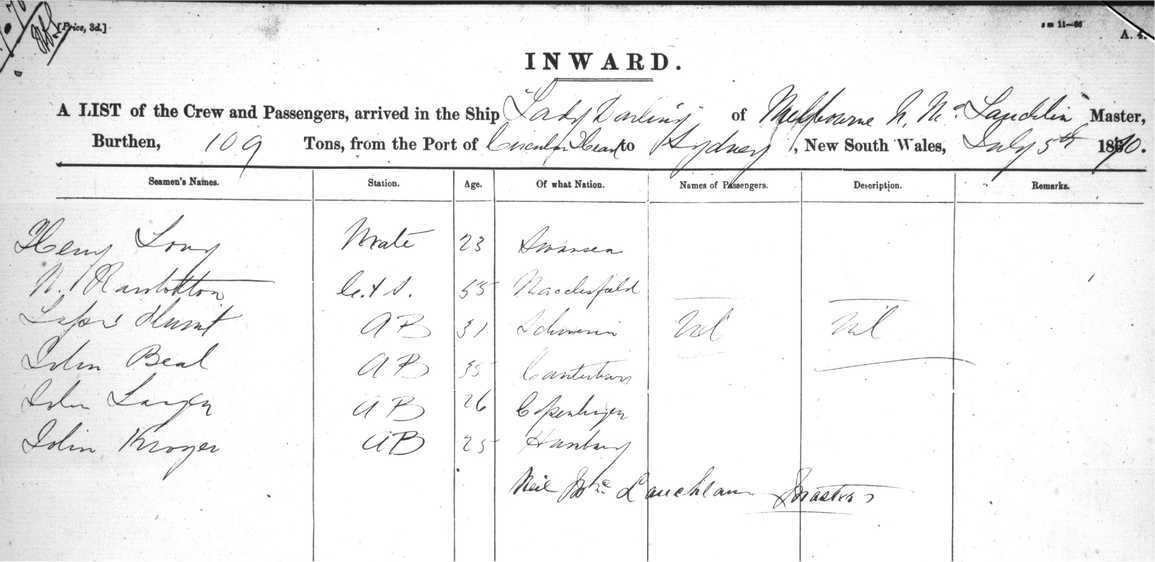 [Price, 3d.]
s m 11—66
A. 4.
INWARD.
A LIST of the Crew and Passengers, arrived in the Ship Lady Darling of Melbourne N. Mc Lauchlin Master,
Burthen, 109 Tons, from the Port of Circular Head to Sydney, New South Wales, July 5th 1870.
Seamen's Names. Station. Age. Of what Nation. Names of Passengers. Description. Remarks.
Henry Long Mate 23 Swansea
N. Rambottom C. & S. 55 Macclesfield
Hunt AB 31 Schwerin Nil Nil
John Beal AB 35 Canterbury
John AB 26 Copenhagen
John Kroger AB 25 Hamburg
Neil Mc Lauchlan Master